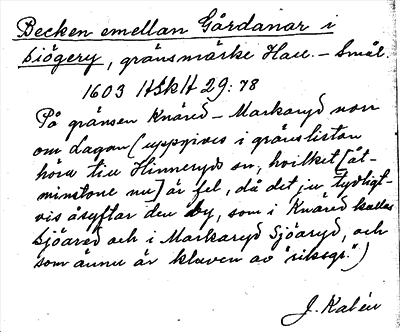 Becken emellan Gårdanar i
Siögery, gränsmärke Hall. – Smål.
1603 HSkH 29: 78
På gränsen Knäred – Markaryd norr
om Lagan (uppgives i gränslistan
höra till Hinneryds sn, hvilket [åt-
minstone nu] är fel, då det ju tydligt-
vis åsyftar den by, som i Knäred kallas
Sjöared och i Markaryd Sjöaryd, och
som ännu är kluven av "riksgr.")
J. Kalén